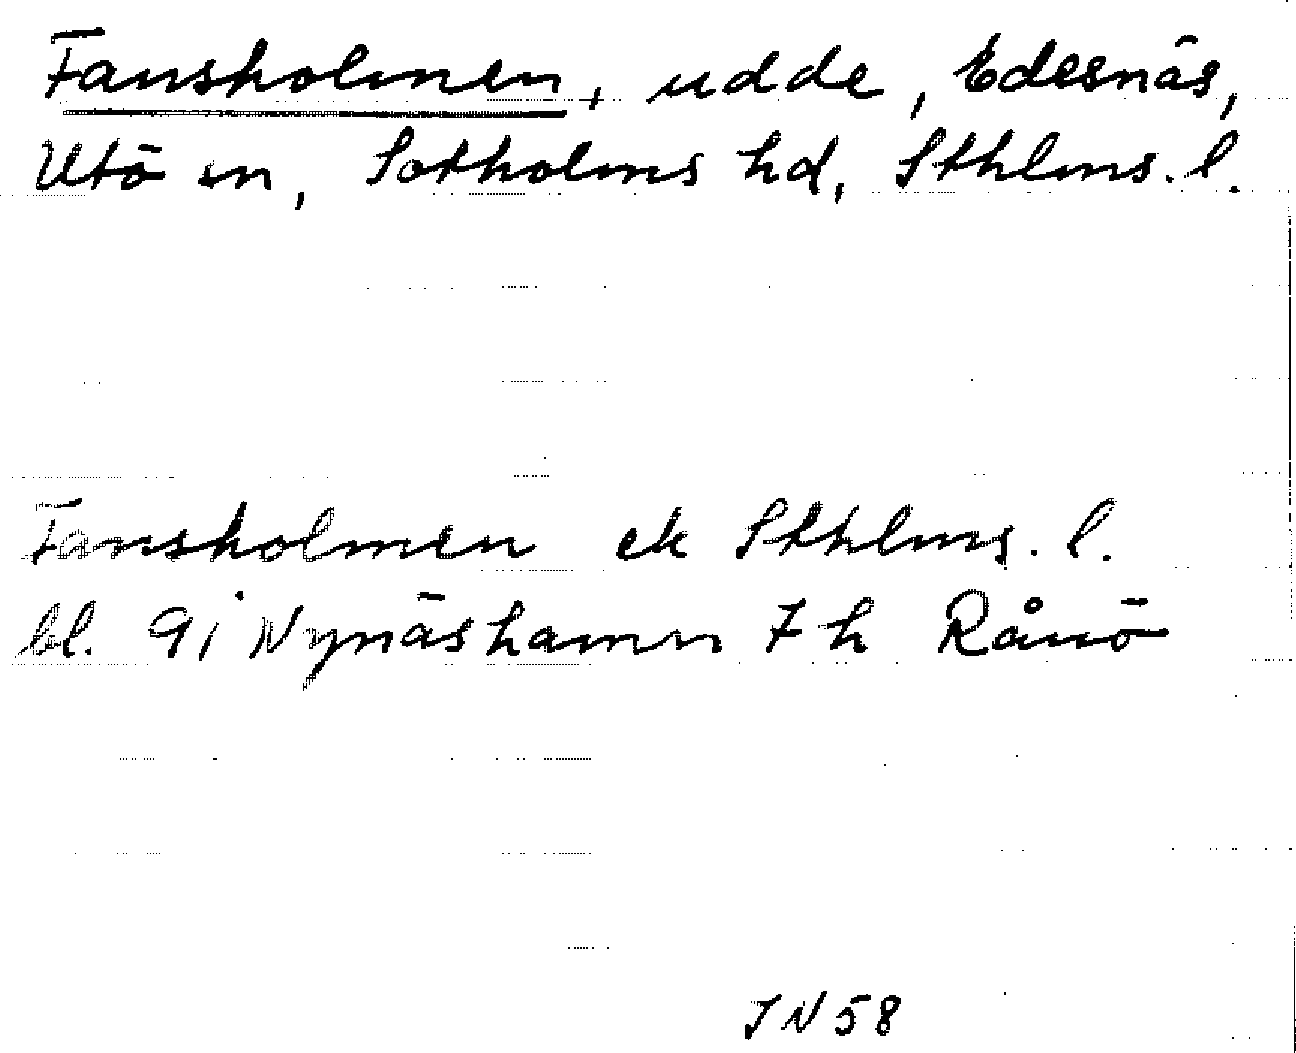 Fansholmen, udde, Edesnäs,
Utö sn, Sotholms hd, Sthlms. l.
Fansholmen ek Sthlms. l.
bl. 9i Nynäshamn 7 h Rånö
JN 58